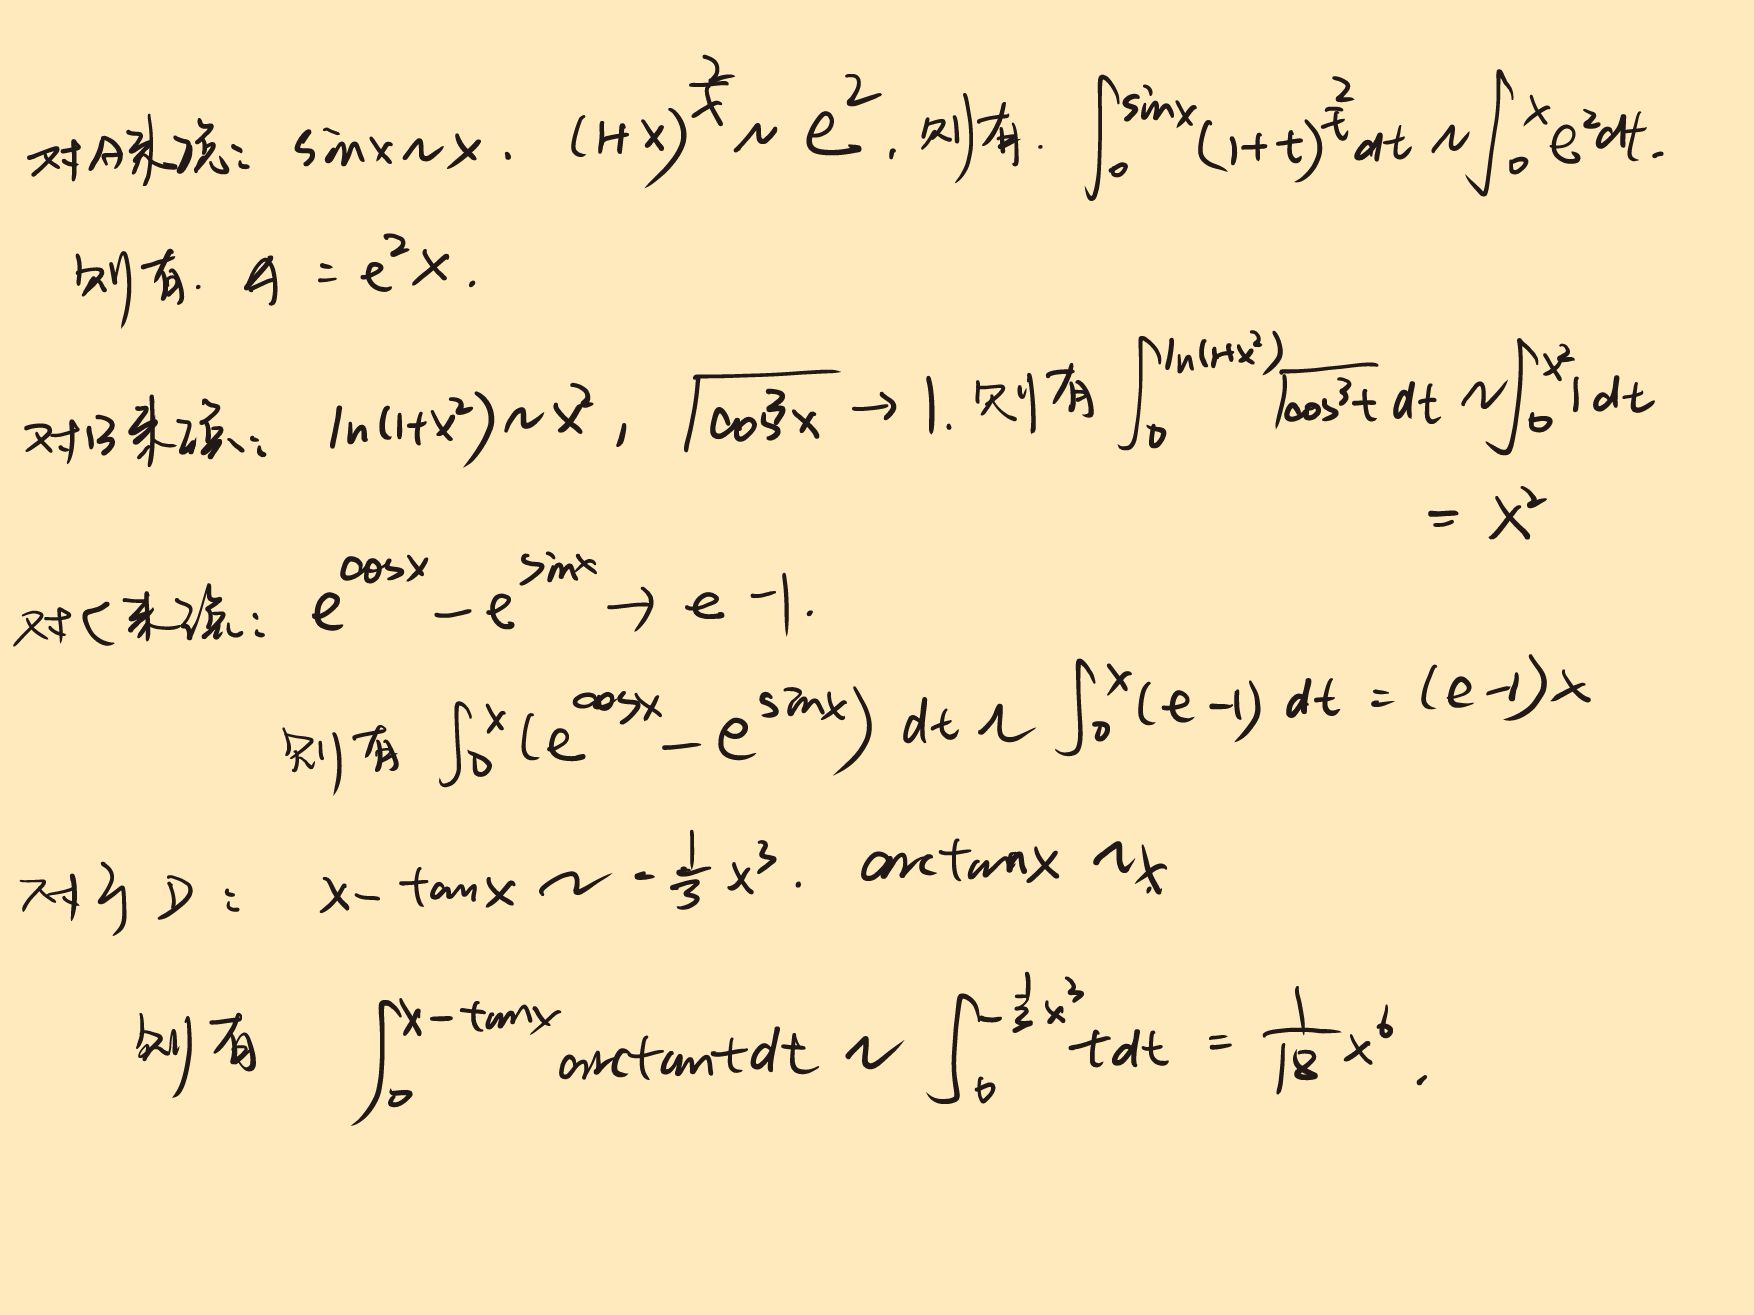 对A来说: sinx~x. (1+x)^{2/x} ~ e^2. 则有. ∫_0^{sinx} (1+t)^{2/t} dt ~ ∫_0^x e^2 dt.
则有. A = e^2 x.
对B来说: ln(1+x^2)~x^2, √(cos^3 x) → 1. 则有 ∫_0^{ln(1+x^2)} √(cos^3 t) dt ~ ∫_0^{x^2} 1 dt
= x^2
对C来说: e^{cosx} - e^{sinx} → e - 1.
则有 ∫_0^x (e^{cosx} - e^{sinx}) dt ~ ∫_0^x (e-1) dt = (e-1)x
对于D: x - tanx ~ -1/3 x^3. arctanx ~ x
则有 ∫_0^{x-tanx} arctant dt ~ ∫_0^{-1/3 x^3} t dt = 1/18 x^6.